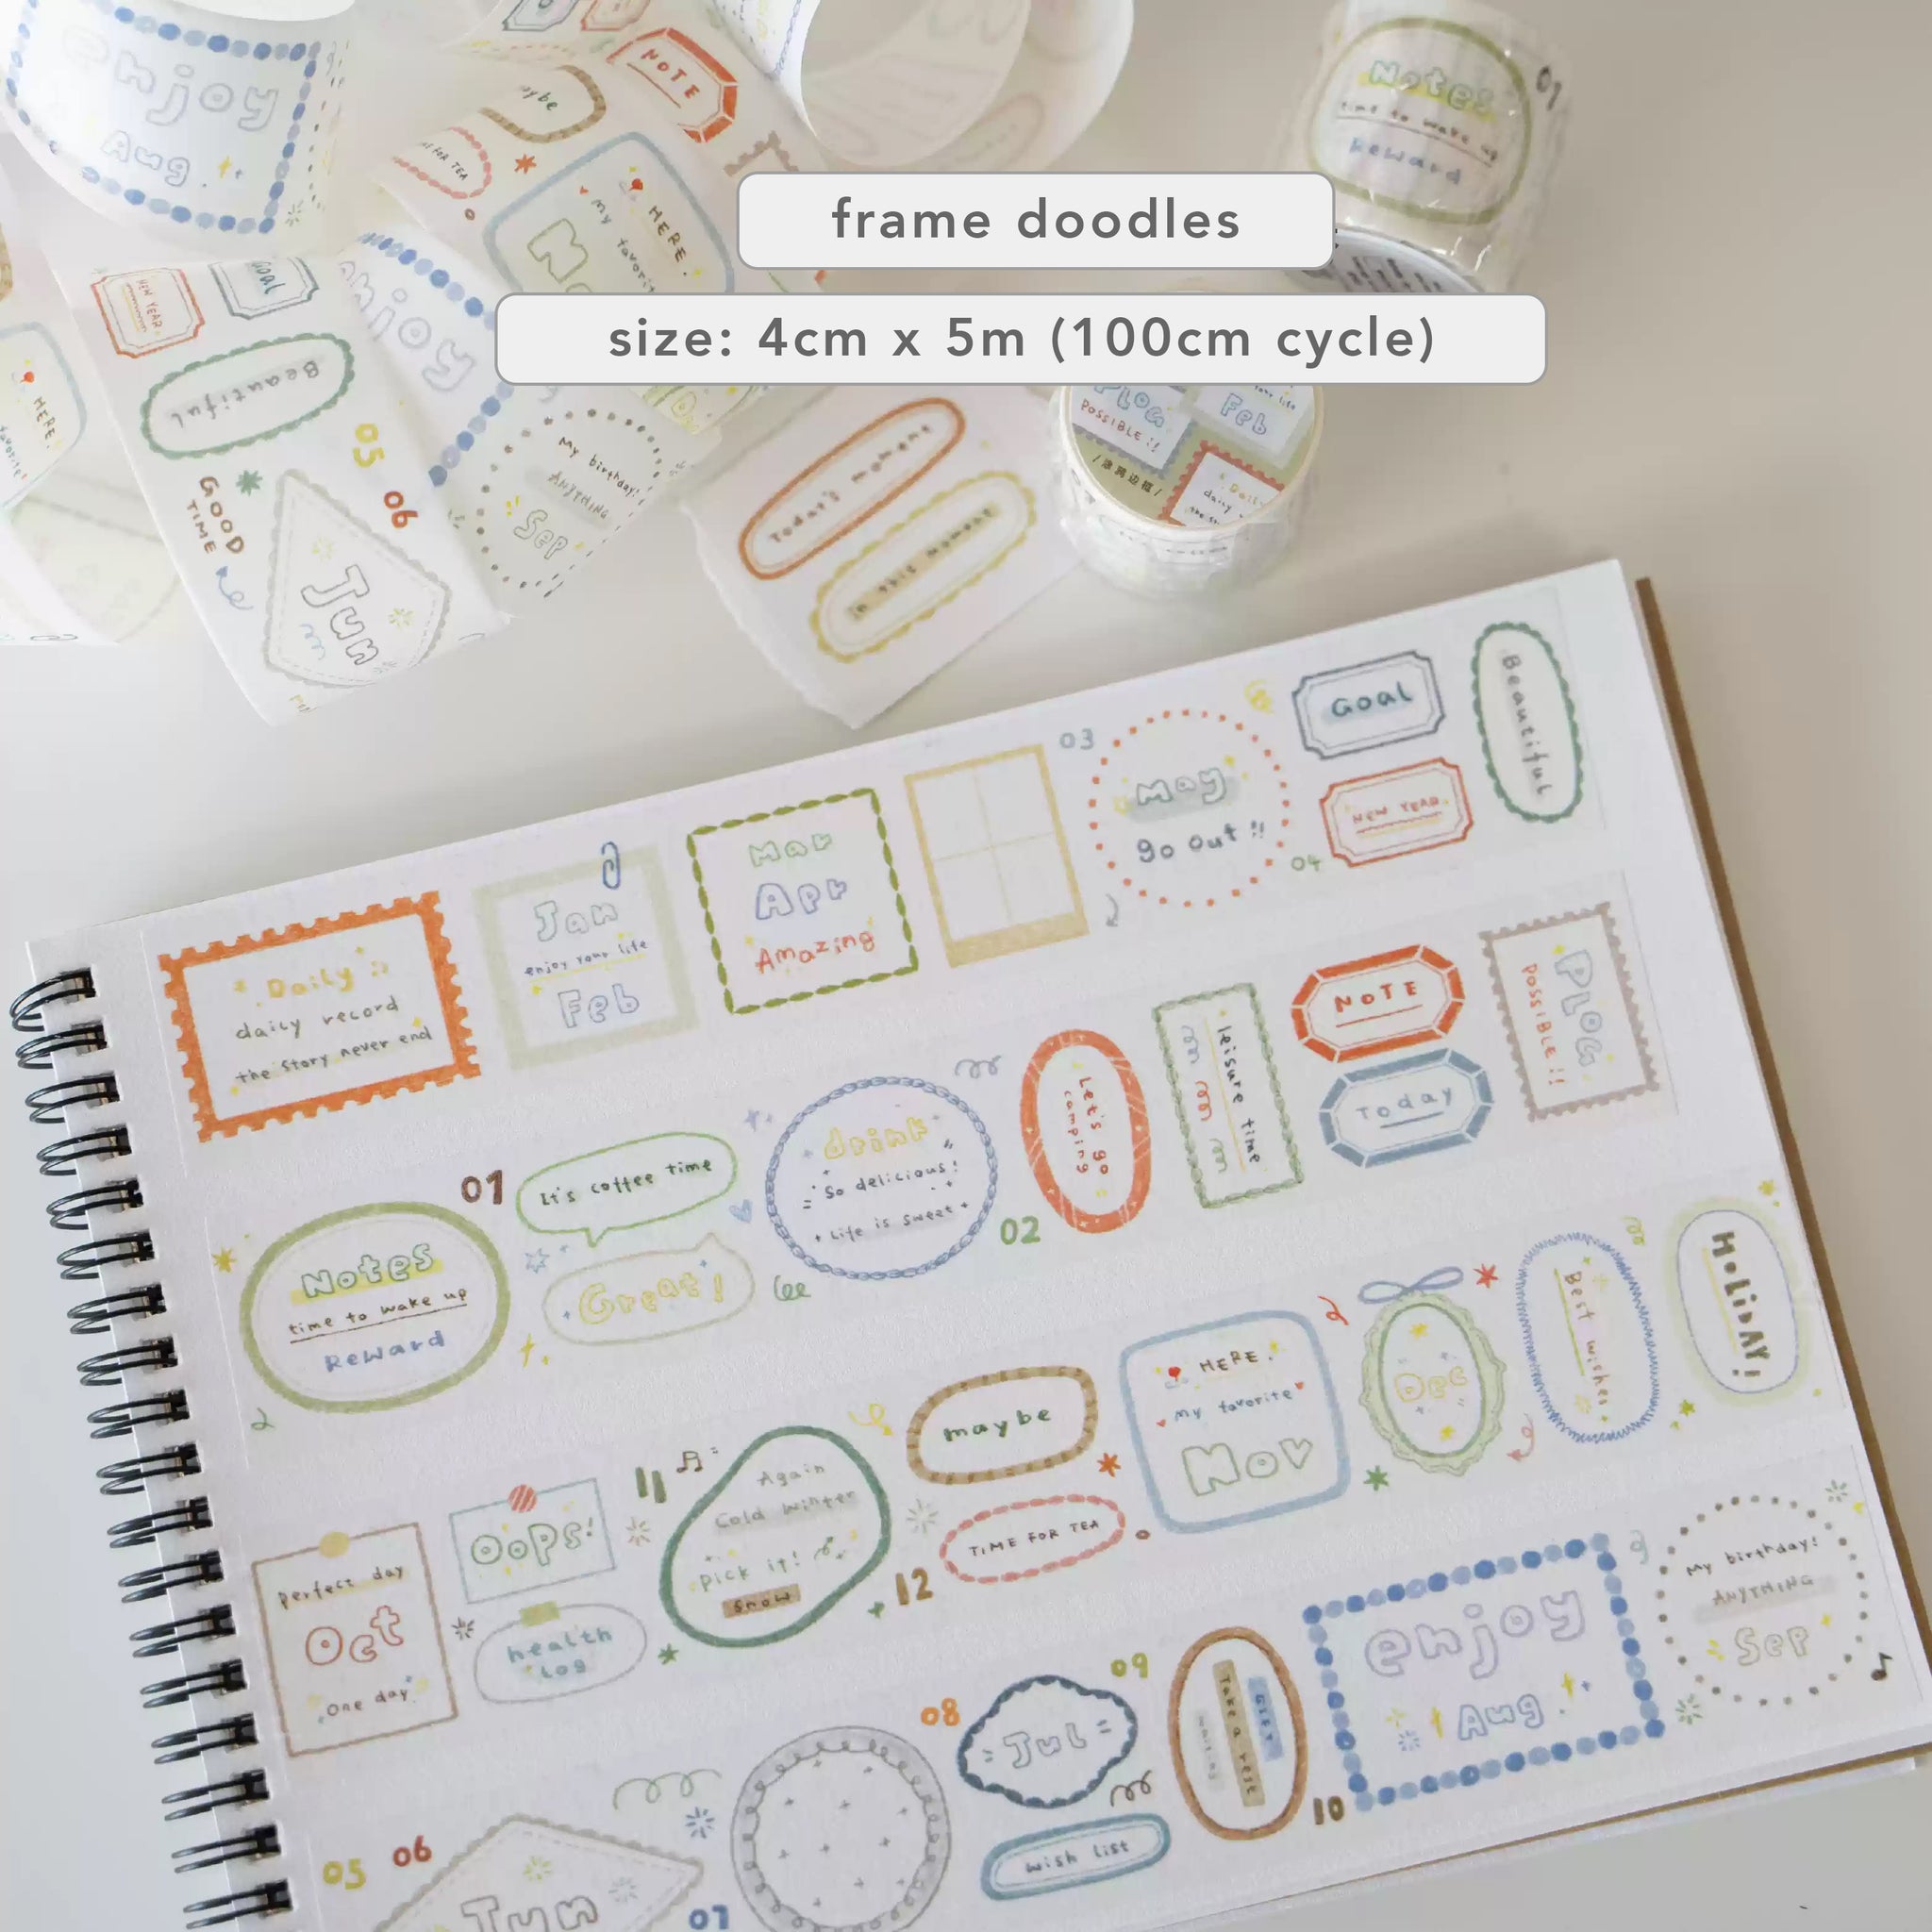 enjoy
Aug.
NOTE
HERE.
my favorit
Notes
time to wake up
Reward
01
frame doodles
size: 4cm x 5m (100cm cycle)
NEW YEAR
Goal
Beautiful
HERE.
05
06
GOOD
TIME
Jun
enjoy
My birthday!
ANYTHING
Sep
Today's moment
in this moment
PLOG
POSSIBLE !!
Feb
/涂鸦边框/
Daily
03
May
go out !!
04
Goal
NEW YEAR
Beautiful
Daily
daily record
the story never end
Jan
enjoy your life
Feb
Mar
Apr
Amazing
NOTE
Today
PLOG
POSSIBLE !!
01
It's coffee time
Great!
drink
So delicious!
Life is sweet
02
Let's go
camping
leisure time
Notes
time to wake up
Reward
HOLiDAY!
Best wishes
Dec
HERE.
my favorite
Nov
maybe
TIME FOR TEA
11
Again
Cold winter
Pick it!
Snow
12
Oops!
health
LOG
perfect day
Oct
One day
My birthday!
ANYTHING
Sep
enjoy
Aug.
10
09
GIFT
Take a rest
waiting
08
Jul
wish list
07
05
06
Jun